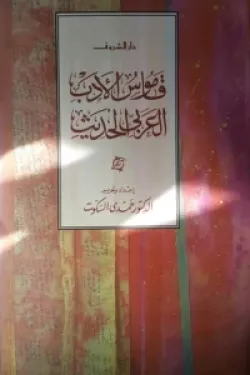 دار الشروق
قاموس الأدب
العربي الحديث
إعداد وتحرير
الدكتور حمدي السكوت